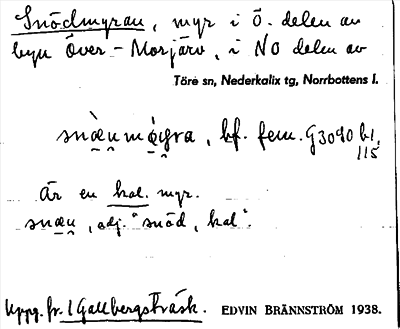 Snödmyran, myr i Ö. delen av
byn Över-Morjärv, i NO delen av
Töre sn, Nederkalix tg, Norrbottens l.
bf. fem. G3090 b1,
115
Är en kal. myr.
adj. "snöd, kal".
Uppg. fr. l Gallbergsträsk. EDVIN BRÄNNSTRÖM 1938.